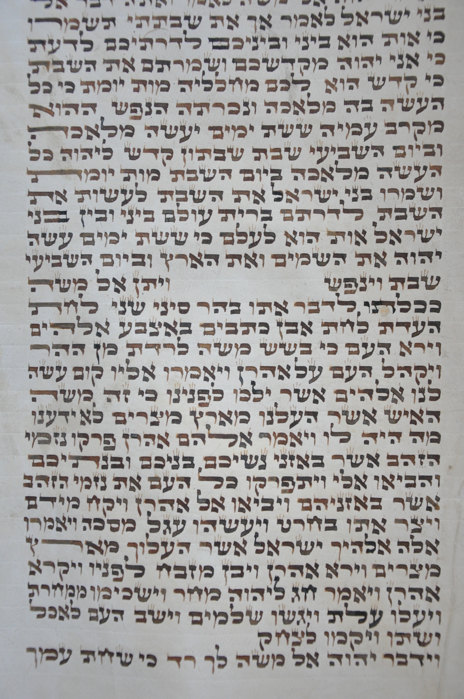 בני ישראל לאמר אך את שבתתי תשמרו
כי אות הוא ביני וביניכם לדרתיכם לדעת
כי אני יהוה מקדשכם ושמרתם את השבת
כי קדש הוא לכם מחלליה מות יומת כי כל
העשה בה מלאכה ונכרתה הנפש ההוא
מקרב עמיה ששת ימים יעשה מלאכה
וביום השביעי שבת שבתון קדש ליהוה כל
העשה מלאכה ביום השבת מות יומת
ושמרו בני ישראל את השבת לעשות את
השבת לדרתם ברית עולם ביני ובין בני
ישראל אות הוא לעלם כי ששת ימים עשה
יהוה את השמים ואת הארץ וביום השביעי
שבת וינפש ויתן אל משה
ככלתו לדבר אתו בהר סיני שני לחת
העדת לחת אבן כתבים באצבע אלהים
וירא העם כי בשש משה לרדת מן ההר
ויקהל העם על אהרן ויאמרו אליו קום עשה
לנו אלהים אשר ילכו לפנינו כי זה משה
האיש אשר העלנו מארץ מצרים לא ידענו
מה היה לו ויאמר אלהם אהרן פרקו נזמי
הזהב אשר באזני נשיכם בניכם ובנתיכם
והביאו אלי ויתפרקו כל העם את נזמי הזהב
אשר באזניהם ויביאו אל אהרן ויקח מידם
ויצר אתו בחרט ויעשהו עגל מסכה ויאמרו
אלה אלהיך ישראל אשר העלוך מארץ
מצרים וירא אהרן ויבן מזבח לפניו ויקרא
אהרן ויאמר חג ליהוה מחר וישכימו ממחרת
ויעלו עלת ויגשו שלמים וישב העם לאכל
ושתו ויקמו לצחק
וידבר יהוה אל משה לך רד כי שחת עמך